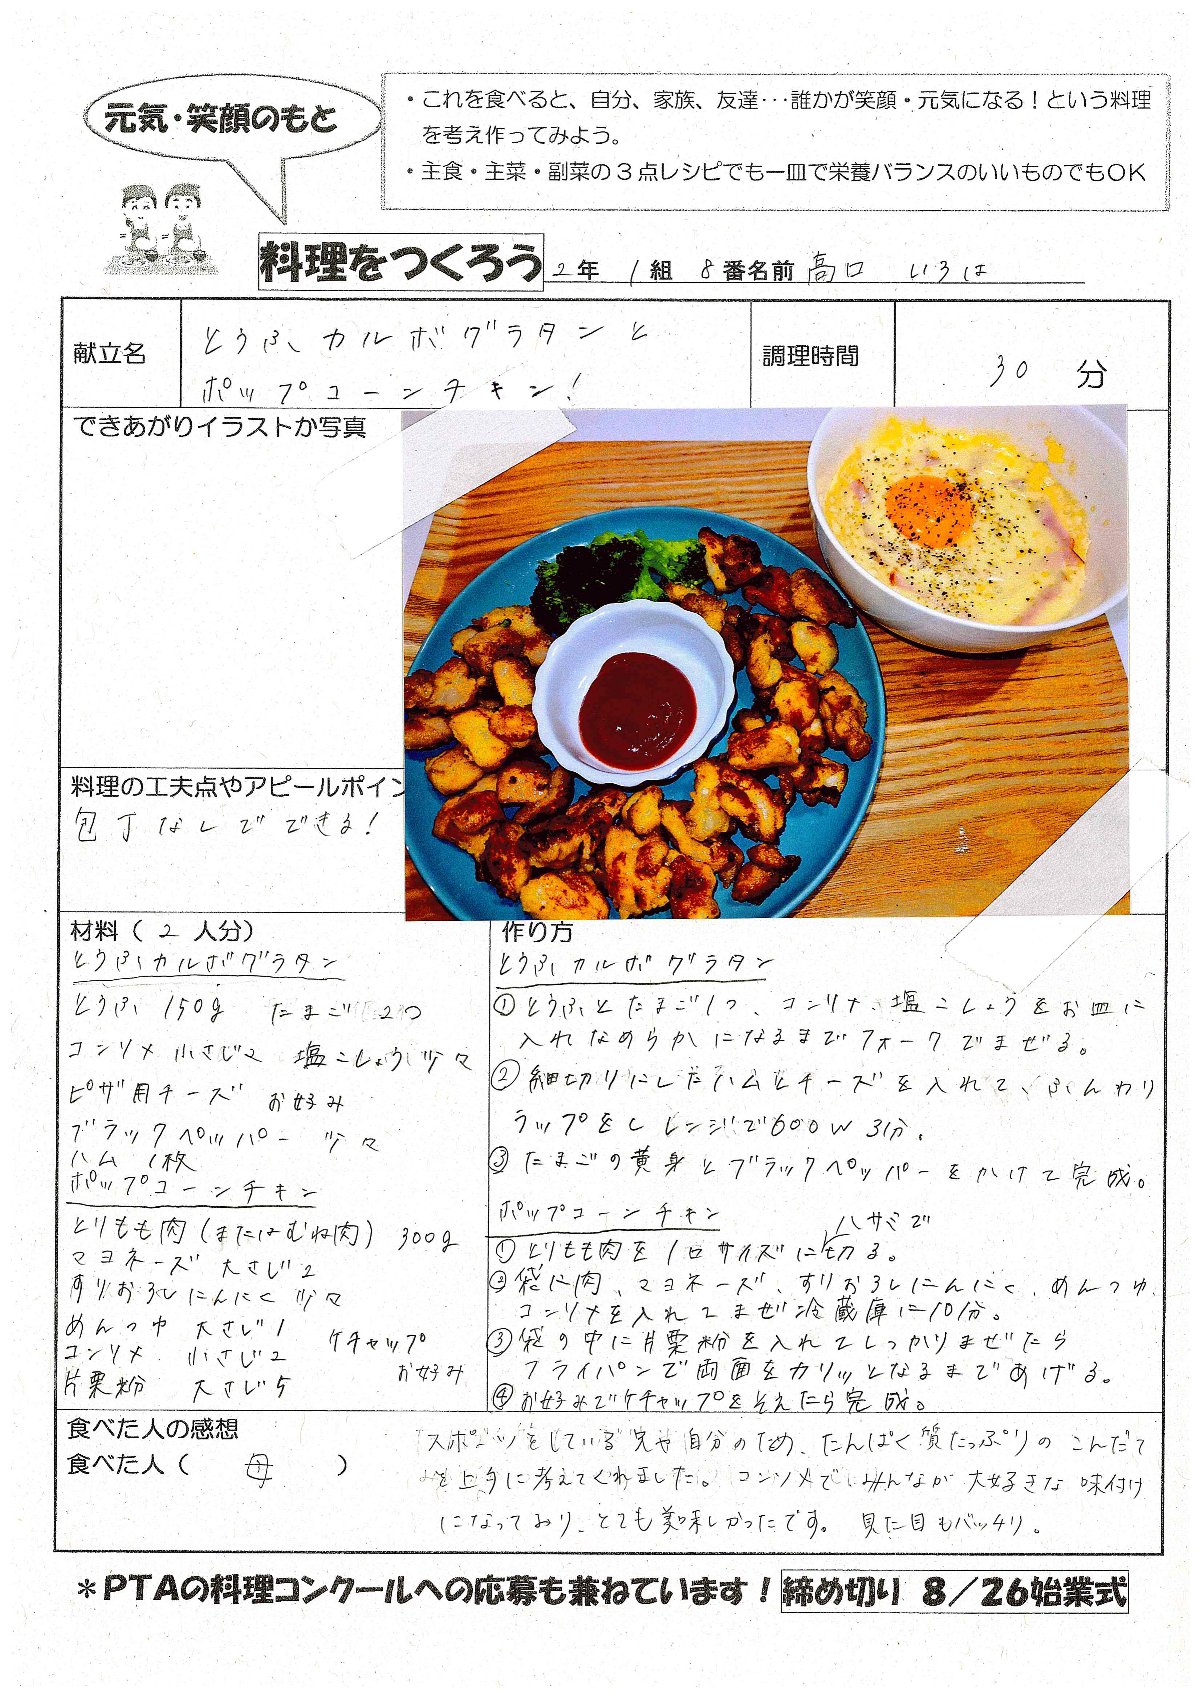 元気・笑顔のもと
・これを食べると、自分、家族、友達･･･誰かが笑顔・元気になる！という料理
を考え作ってみよう。
・主食・主菜・副菜の3点レシピでも一皿で栄養バランスのいいものでもOK
料理をつくろう 2年 1組 8番名前 高口 いろは
献立名
とうふカルボグラタンと
ポップコーンチキン!
調理時間
30 分
できあがりイラストか写真
料理の工夫点やアピールポイン
包丁なしでできる!
材料（ 2 人分）
とうふカルボグラタン
とうふ 150g たまご 2つ
コンソメ 小さじ2 塩こしょう 少々
ピザ用チーズ お好み
ブラックペッパー 少々
ハム 1枚
ポップコーンチキン
とりもも肉(またはむね肉) 300g
マヨネーズ 大さじ2
すりおろしにんにく 少々
めんつゆ 大さじ1
コンソメ 小さじ2 ケチャップ
片栗粉 大さじ5 お好み
作り方
とうふカルボグラタン
①とうふとたまご1つ、コンソメ、塩こしょうをお皿に
入れなめらかになるまでフォークでまぜる。
②細切りにしたハムとチーズを入れて、ふんわり
ラップをしレンジで600W 3分。
③たまごの黄身とブラックペッパーをかけて完成。
ポップコーンチキン
ハサミで
①とりもも肉を1口サイズに切る。
②袋に肉、マヨネーズ、すりおろしにんにく、めんつゆ、
コンソメを入れてまぜ冷蔵庫に10分。
③袋の中に片栗粉を入れてしっかりまぜたら
フライパンで両面をカリッとなるまであげる。
④お好みでケチャップをそえたら完成。
食べた人の感想
食べた人（ 母 ）
スポーツをしている兄や自分のため、たんぱく質たっぷりのこんだて
を上手に考えてくれました。コンソメでみんなが大好きな味付け
になっており、とても美味しかったです。見た目もバッチリ。
＊PTAの料理コンクールへの応募も兼ねています！締め切り 8／26始業式